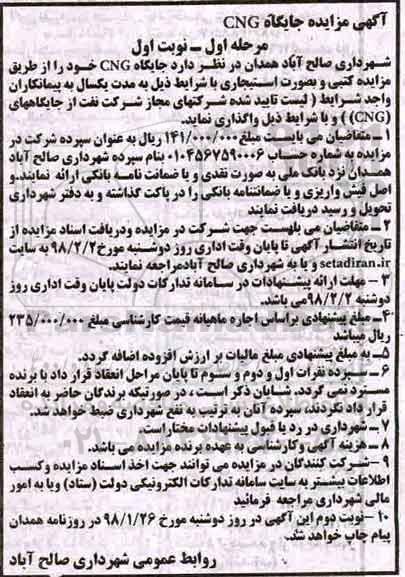 آگهی مزایده جایگاه CNG
مرحله اول ــ نوبت اول
شهرداری صالح آباد همدان در نظر دارد جایگاه CNG خود را از طریق
مزایده کتبی و بصورت استیجاری با شرایط ذیل به مدت یکسال به پیمانکاران
واجد شرایط ( لیست تایید شده شرکتهای مجاز شرکت نفت از جایگاههای
(CNG) ) و با شرایط ذیل واگذاری نماید.
۱ــ متقاضیان می بایست مبلغ ۱۴۱/۰۰۰/۰۰۰ ریال به عنوان سپرده شرکت در
مزایده به شماره حساب ۰۱۰۴۵۶۷۵۹۰۰۰۶ بنام سپرده شهرداری صالح آباد
همدان نزد بانک ملی به صورت نقدی و یا ضمانت نامه بانکی ارائه نمایند.و
اصل فیش واریزی و یا ضمانتنامه بانکی را در پاکت گذاشته و به دفتر شهرداری
تحویل و رسید دریافت نمایند
۲ــ متقاضیان می بایست جهت شرکت در مزایده ودریافت اسناد مزایده از
تاریخ انتشار آگهی تا پایان وقت اداری روز دوشنبه مورخ ۹۸/۲/۲ به سایت
setadiran.ir و یا به شهرداری صالح آبادمراجعه نمایند.
۳ــ مهلت ارائه پیشنهادات در سامانه تدارکات دولت پایان وقت اداری روز
دوشنبه ۹۸/۲/۲ می باشد.
۴ــ مبلغ پیشنهادی براساس اجاره ماهیانه قیمت کارشناسی مبلغ ۲۳۵/۰۰۰/۰۰۰
ریال میباشد
۵ــ به مبلغ پیشنهادی مبلغ مالیات بر ارزش افزوده اضافه گردد.
۶ــ سپرده نفرات اول و دوم و سوم تا پایان مراحل انعقاد قرار داد با برنده
مسترد نمی گردد. شایان ذکر است ، در صورتیکه برندگان حاضر به انعقاد
قرار داد نگردند، سپرده آنان به ترتیب به نفع شهرداری ضبط خواهد شد.
۷ــ شهرداری در رد یا قبول پیشنهادات مختار است.
۸ــ هزینه آگهی وکارشناسی به عهده برنده مزایده می باشد.
۹ــ شرکت کنندگان در مزایده می توانند جهت اخذ اسناد مزایده وکسب
اطلاعات بیشتر به سایت سامانه تدارکات الکترونیکی دولت (ستاد) ویا به امور
مالی شهرداری مراجعه فرمائید
۱۰ــ نوبت دوم این آگهی در روز دوشنبه مورخ ۹۸/۱/۲۶ در روزنامه همدان
پیام چاپ خواهد شد.
روابط عمومی شهرداری صالح آباد